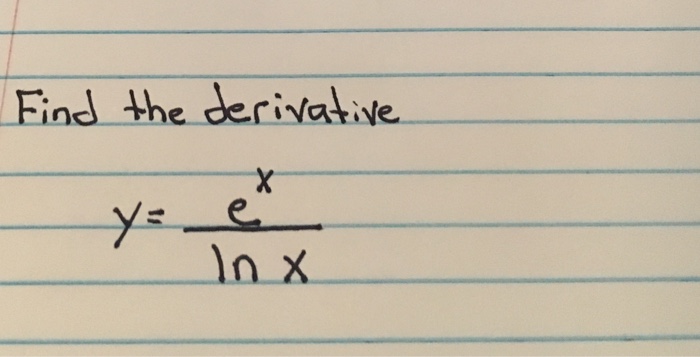 Find the derivative
y = e^x / ln x